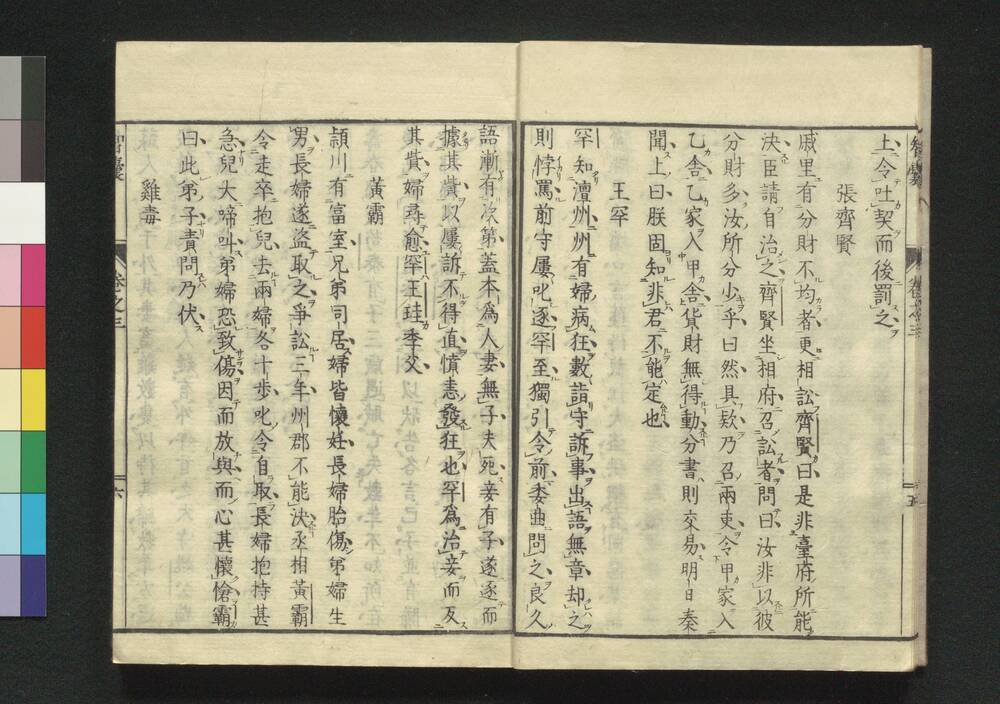 上令吐契而後罰之
張齊賢
戚里有分財不均者更相訟齊賢曰是非臺府所能
決臣請自治之齊賢坐相府召訟者問曰汝非以彼
分財多汝所分少乎曰然具欵乃召兩吏令甲家入
乙舎乙家入甲舎貨財無得動分書則交易明日奏
聞上曰朕固知非君不能定也
王罕
罕知澶州州有婦病狂數詣守訴事出語無章却之
則悖罵前守屢叱逐罕至獨引令前委曲問之良久
語漸有次第蓋本為人妻無子夫死妾有子遂逐而
據其貲以屢訴不得直憤恚發狂也罕為治妾而反
其貲婦尋愈罕王珪季父
黃霸
頴川有富室兄弟同居婦皆懷妊長婦胎傷弟婦生
男長婦遂盜取之爭訟三年州郡不能決丞相黃霸
令走卒抱兒去兩婦各十步叱令自取長婦抱持甚
急兒大啼叫弟婦恐致傷因而放與而心甚懷愴霸
曰此弟子責問乃伏
雞毒
智囊
卷之三
六